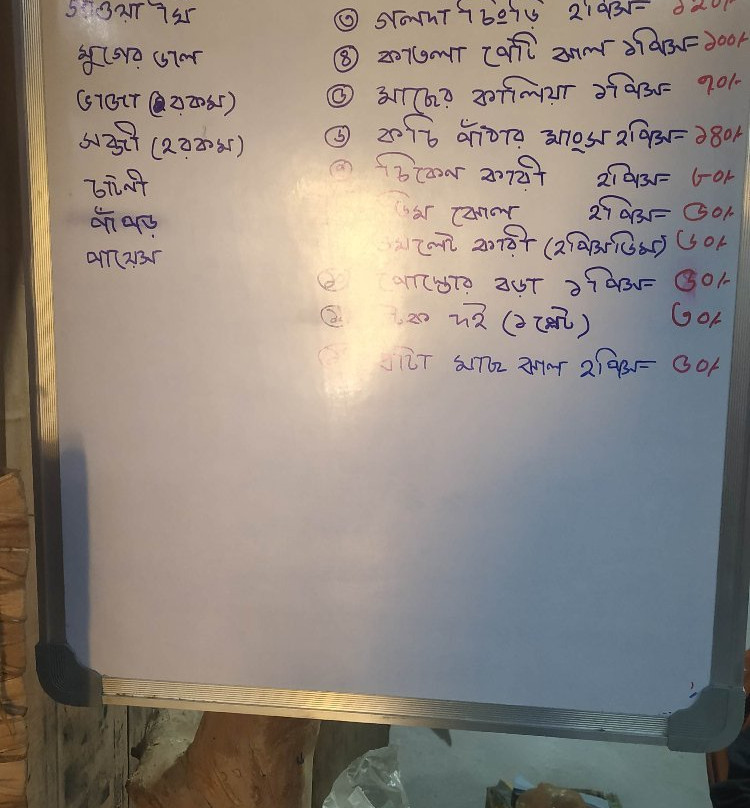 গাওয়া ঘি
মুগের ডাল
ভাজা (২রকম)
সব্জী (২রকম)
চাটনী
পাঁপড়
পায়েস
③ গলদা চিংড়ি ২পিস= ১২০/-
④ কাতলা পেটি ঝাল ১পিস= ১০০/-
⑤ মাছের কালিয়া ১পিস= ৭০/-
⑥ কচি পাঁঠার মাংস ২পিস= ১৪০/-
⑦ চিকেন কারী ২পিস= ৮০/-
ডিম ঝোল ২পিস= ৫০/-
কারী (২পিস ডিম) ৬০/-
পোস্তোর বড়া ১পিস= ৫০/-
টক দই (১ প্লেট) ৩০/-
মাছ ঝাল ২পিস= ৫০/-